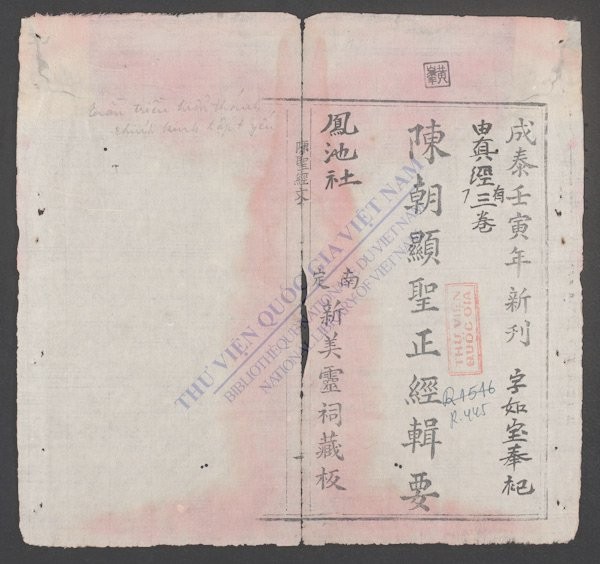 黄
成泰壬寅年新刊 字如室奉祀
由真經有三卷
陳朝顯聖正經輯要
鳳池社
南定
新美靈祠藏板
陳聖經文
THƯ VIỆN
QUỐC GIA
Q4546
R.445
THƯ VIỆN QUỐC GIA VIỆT NAM
BIBLIOTHÈQUE NATIONALE DU VIETNAM
NATIONAL LIBRARY OF VIETNAM